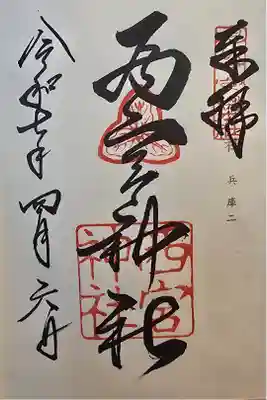 奉拝
兵庫二
西宮神社
令和七年四月六日